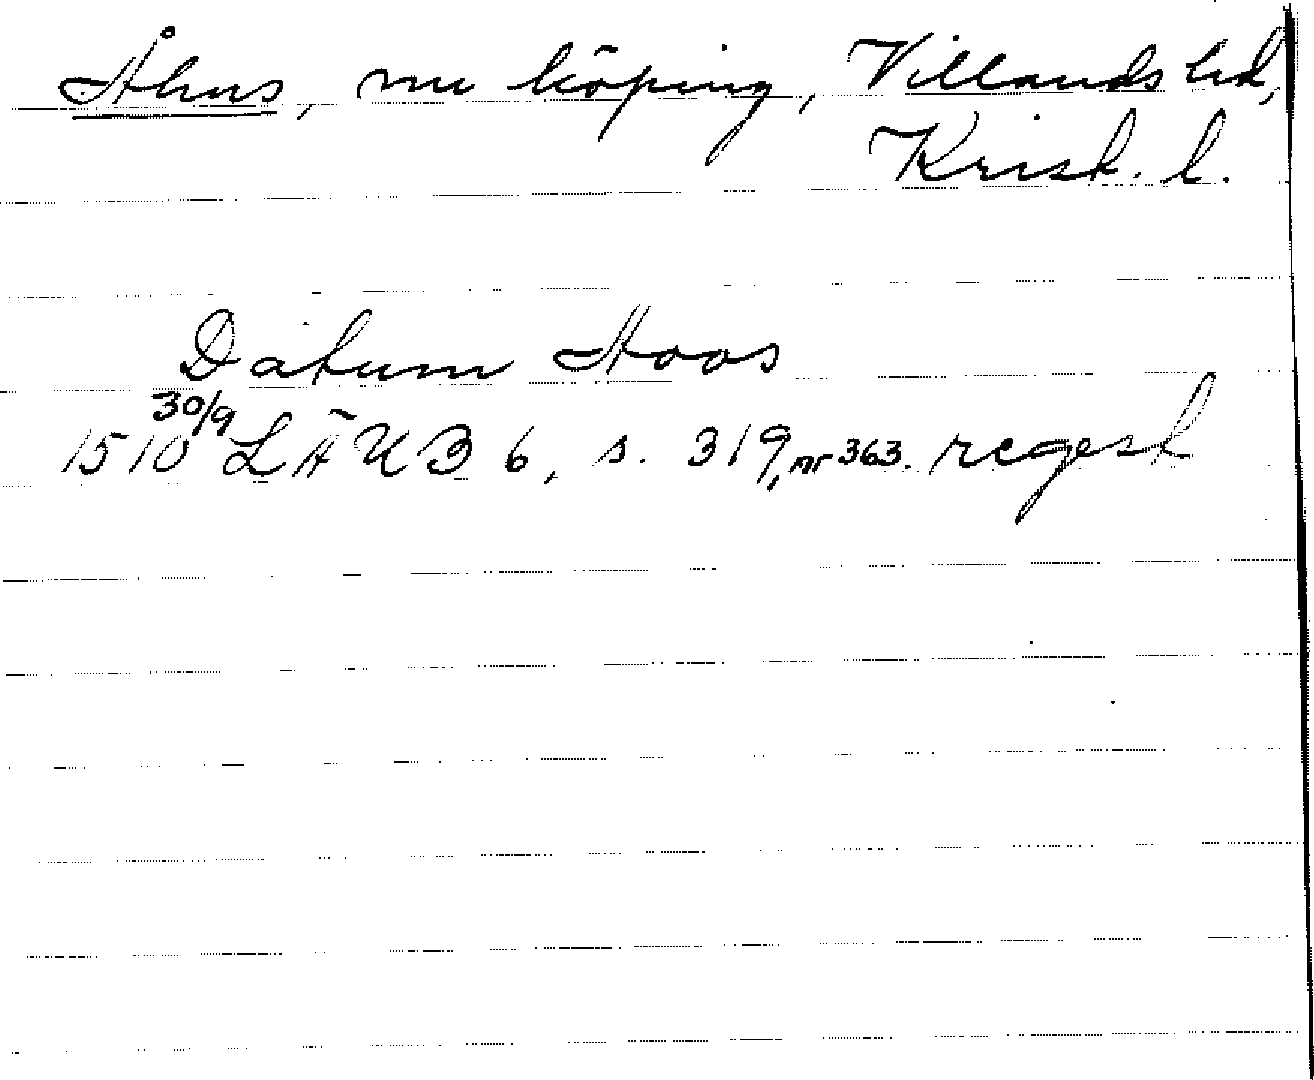 Åhus, nu köping, Villands hd,
Krist. l.
Datum Aoos
1510 30/9 LÄUB 6, s. 319, nr 363. regest